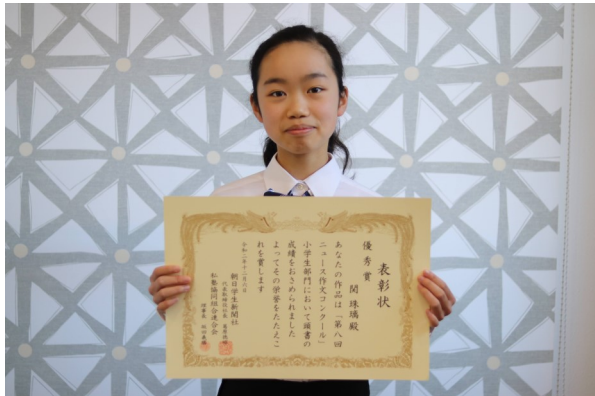 表彰状
優秀賞
関 珠璃殿
あなたの作品は「第八回
ニュース作文コンクール」
小学生部門において頭書の
成績をおさめられました
よってその栄誉をたたえこ
れを賞します
令和二年十二月六日
朝日学生新聞社
代表取締役社長
私塾協同組合連合会
理事長